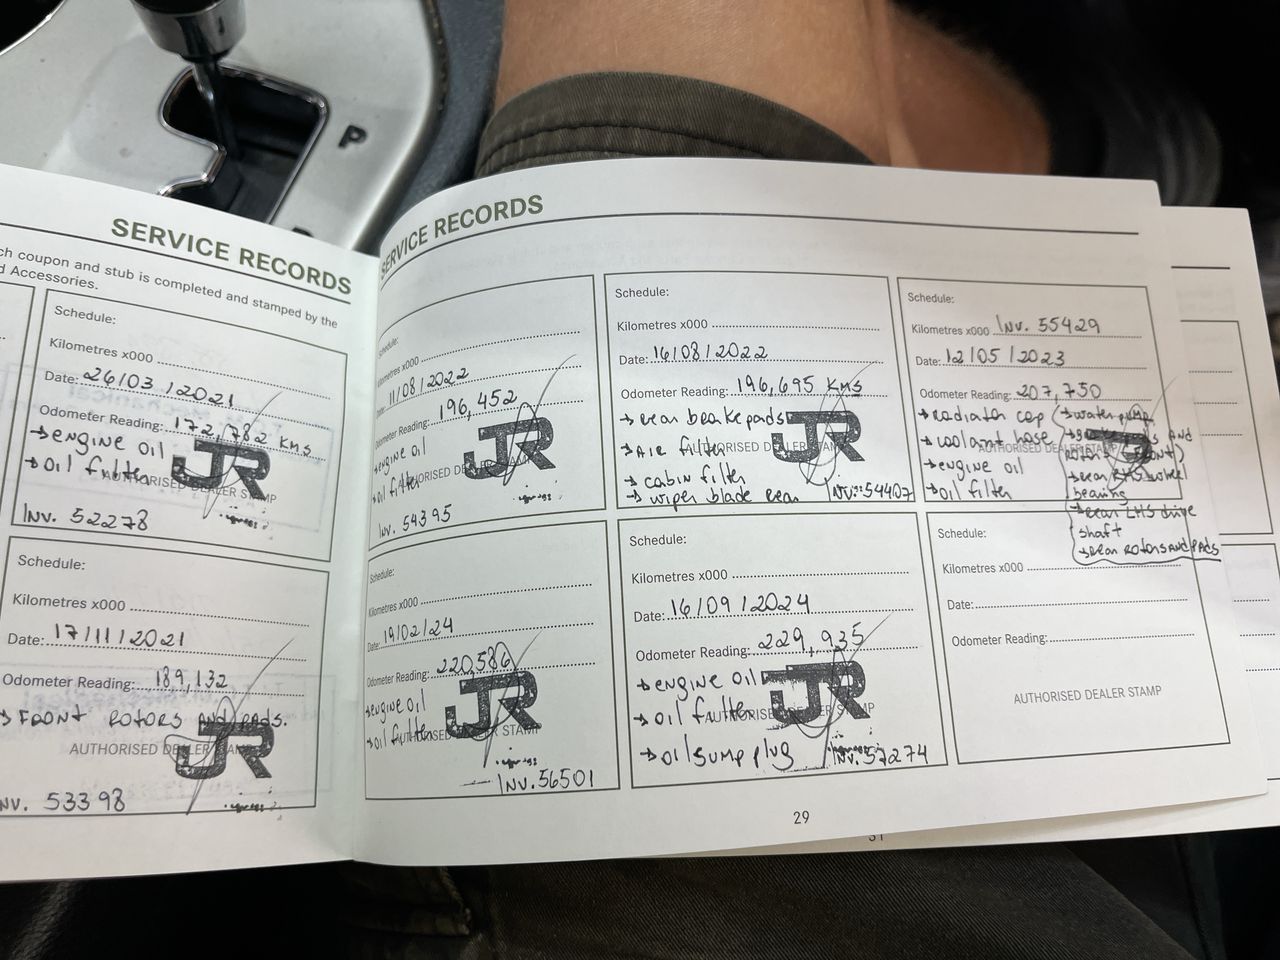 P
SERVICE RECORDS
ch coupon and stub is completed and stamped by the
d Accessories.
Schedule:
Kilometres x000
Date: 26/03/2021
Odometer Reading: 172,782 KMS
→ engine oil
→ oil fillter
AUTHORISED DEALER STAMP
JR
INV. 52278
Schedule:
Kilometres x000
Date: 17/11/2021
Odometer Reading: 189,132
→ FRONT ROTORS AND PADS.
AUTHORISED DEALER STAMP
JR
NV. 53398
SERVICE RECORDS
Schedule:
Kilometres x000
Date: 11/08/2022
Odometer Reading: 196,452
→ engine oil
→ oil filter
AUTHORISED DEALER STAMP
JR
INV. 54395
Schedule:
Kilometres x000
Date: 16/08/2022
Odometer Reading: 196,695 KMS
→ rear brakepads
→ AIR filter
AUTHORISED DEALER STAMP
→ cabin filter
→ wiper blade rear
JR
INV: 54407
Schedule:
Kilometres x000 INV. 55429
Date: 12/05/2023
Odometer Reading: 207,750
→ radiator cap
→ coolant hose
→ engine oil
→ oil filter
AUTHORISED DEALER STAMP
→ water pump
AND
→ rear RHS wheel
bearing
→ rear LHS drive
shaft
→ rear ROTORS AND PADS
Schedule:
Kilometres x000
Date: 19/02/24
Odometer Reading: 220,586
→ engine oil
→ oil fillter
AUTHORISED DEALER STAMP
JR
INV. 56501
Schedule:
Kilometres x000
Date: 16/09/2024
Odometer Reading: 229,935
→ engine oil
→ oil fillter
AUTHORISED DEALER STAMP
→ oil sump plug
JR
INV. 57274
Schedule:
Kilometres x000
Date:
Odometer Reading:
AUTHORISED DEALER STAMP
29
31